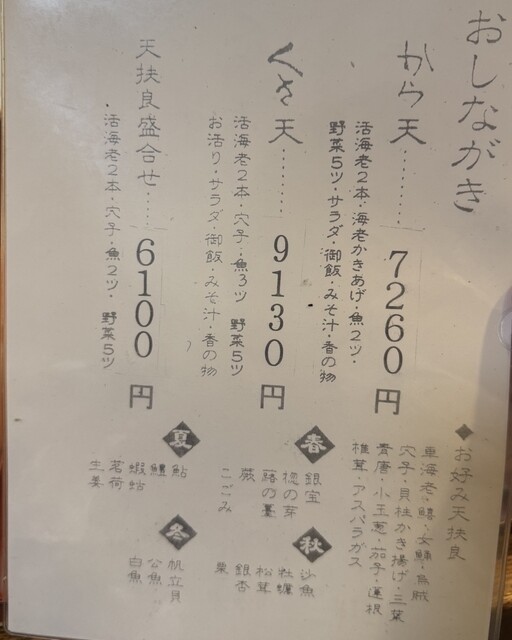 おしながき
から天………7260円
活海老2本・海老かきあげ・魚2ツ・
野菜5ツ・サラダ・御飯・みそ汁・香の物
くさ天………9130円
活海老2本・穴子・魚3ツ 野菜5ツ
お活り・サラダ・御飯・みそ汁・香の物
天扶良盛合せ……6100円
活海老2本・穴子・魚2ツ・野菜5ツ
◆お好み天扶良
車海老・鱚・女鯒・烏賊
穴子・貝柱かき揚げ・三葉
青唐・小玉葱・茄子・蓮根
椎茸・アスパラガス
春
銀宝
惚の芽
蕗の薹
蕨
こごみ
夏
鮎
鱧
蝦蛄
茗荷
生姜
秋
沙魚
牡蠣
松茸
銀杏
栗
冬
帆立貝
公魚
白魚